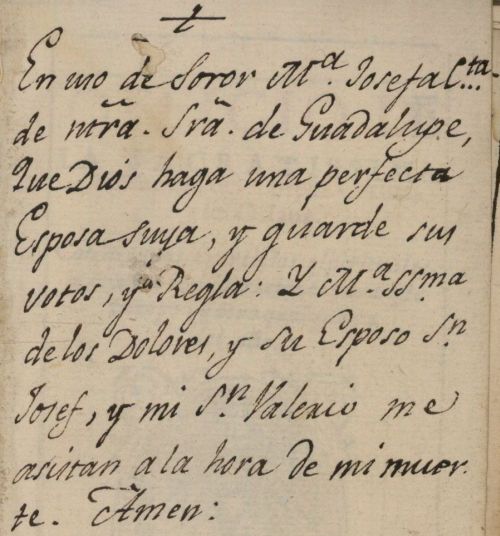 En uso de Soror Mª. Josefa C...ta
de ntr̃a. Sr̃a. de Guadalupe,
Que Dios haga una perfecta
Esposa suya, y guarde sus
votos, y Regla: Y Mª. SSma
de los Dolores, y su Esposo Sn
Josef, y mi Sn. Valerio me
asistan a la hora de mi muer-
te. Amen: